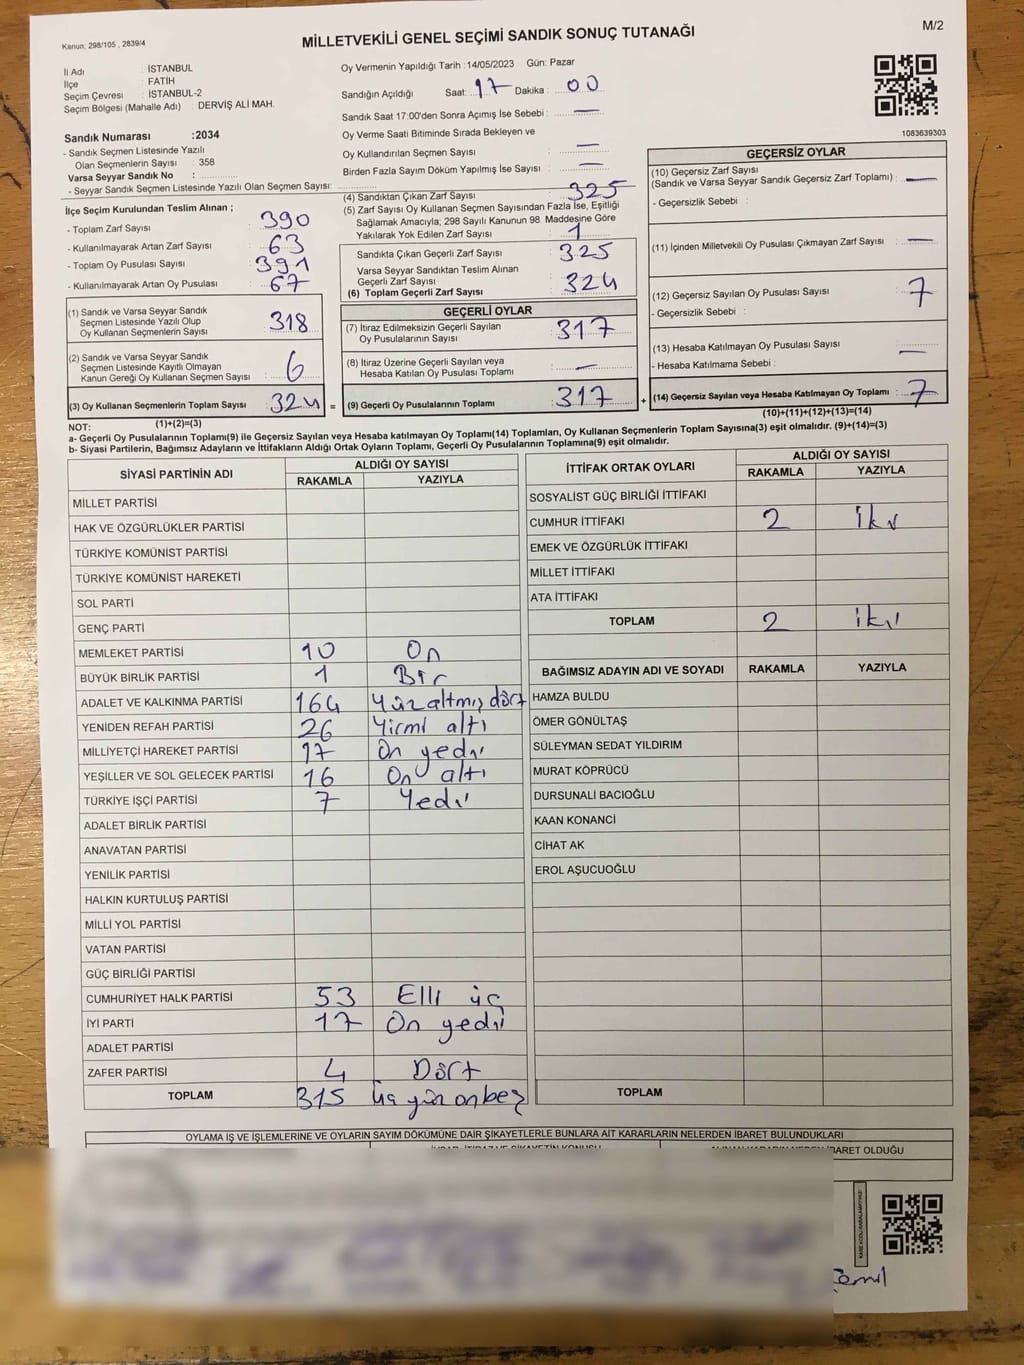 Kanun; 298/105 , 2839/4
MİLLETVEKİLİ GENEL SEÇİMİ SANDIK SONUÇ TUTANAĞI
M/2
İl Adı : İSTANBUL
İlçe : FATİH
Seçim Çevresi : İSTANBUL-2
Seçim Bölgesi (Mahalle Adı) : DERVİŞ ALİ MAH.
Sandık Numarası :2034
- Sandık Seçmen Listesinde Yazılı
Olan Seçmenlerin Sayısı : 358
Varsa Seyyar Sandık No :
- Seyyar Sandık Seçmen Listesinde Yazılı Olan Seçmen Sayısı:
Oy Vermenin Yapıldığı Tarih :14/05/2023 Gün: Pazar
Sandığın Açıldığı Saat: 17 Dakika : 00
Sandık Saat 17:00'den Sonra Açımış İse Sebebi : —
Oy Verme Saati Bitiminde Sırada Bekleyen ve
Oy Kullandırılan Seçmen Sayısı : —
Birden Fazla Sayım Döküm Yapılmış İse Sayısı : —
1083639303
İlçe Seçim Kurulundan Teslim Alınan ;
- Toplam Zarf Sayısı : 390
- Kullanılmayarak Artan Zarf Sayısı : 63
- Toplam Oy Pusulası Sayısı : 391
- Kullanılmayarak Artan Oy Pusulası : 67
(1) Sandık ve Varsa Seyyar Sandık
Seçmen Listesinde Yazılı Olup
Oy Kullanan Seçmenlerin Sayısı : 318
(2) Sandık ve Varsa Seyyar Sandık
Seçmen Listesinde Kayıtlı Olmayan
Kanun Gereği Oy Kullanan Seçmen Sayısı : 6
(3) Oy Kullanan Seçmenlerin Toplam Sayısı : 324 =
(1)+(2)=(3)
(4) Sandıktan Çıkan Zarf Sayısı : 325
(5) Zarf Sayısı Oy Kullanan Seçmen Sayısından Fazla İse, Eşitliği
Sağlamak Amacıyla; 298 Sayılı Kanunun 98. Maddesine Göre
Yakılarak Yok Edilen Zarf Sayısı : 1
Sandıkta Çıkan Geçerli Zarf Sayısı : 325
Varsa Seyyar Sandıktan Teslim Alınan
Geçerli Zarf Sayısı : 324
(6) Toplam Geçerli Zarf Sayısı
GEÇERLİ OYLAR
(7) İtiraz Edilmeksizin Geçerli Sayılan
Oy Pusulalarının Sayısı : 317
(8) İtiraz Üzerine Geçerli Sayılan veya
Hesaba Katılan Oy Pusulası Toplamı : —
(9) Geçerli Oy Pusulalarının Toplamı : 317 +
GEÇERSİZ OYLAR
(10) Geçersiz Zarf Sayısı
(Sandık ve Varsa Seyyar Sandık Geçersiz Zarf Toplamı) : —
- Geçersizlik Sebebi :
(11) İçinden Milletvekili Oy Pusulası Çıkmayan Zarf Sayısı : —
(12) Geçersiz Sayılan Oy Pusulası Sayısı : 7
- Geçersizlik Sebebi :
(13) Hesaba Katılmayan Oy Pusulası Sayısı : —
- Hesaba Katılmama Sebebi :
(14) Geçersiz Sayılan veya Hesaba Katılmayan Oy Toplamı : 7
(10)+(11)+(12)+(13)=(14)
NOT:
a- Geçerli Oy Pusulalarının Toplamı(9) ile Geçersiz Sayılan veya Hesaba katılmayan Oy Toplamı(14) Toplamları, Oy Kullanan Seçmenlerin Toplam Sayısına(3) eşit olmalıdır. (9)+(14)=(3)
b- Siyasi Partilerin, Bağımsız Adayların ve İttifakların Aldığı Ortak Oyların Toplamı, Geçerli Oy Pusulalarının Toplamına(9) eşit olmalıdır.
SİYASİ PARTİNİN ADI ALDIĞI OY SAYISI
RAKAMLA YAZIYLA
MİLLET PARTİSİ
HAK VE ÖZGÜRLÜKLER PARTİSİ
TÜRKİYE KOMÜNİST PARTİSİ
TÜRKİYE KOMÜNİST HAREKETİ
SOL PARTİ
GENÇ PARTİ
MEMLEKET PARTİSİ 10 On
BÜYÜK BİRLİK PARTİSİ 1 Bir
ADALET VE KALKINMA PARTİSİ 164 Yüz altmış dört
YENİDEN REFAH PARTİSİ 26 Yirmi altı
MİLLİYETÇİ HAREKET PARTİSİ 17 On yedi
YEŞİLLER VE SOL GELECEK PARTİSİ 16 On altı
TÜRKİYE İŞÇİ PARTİSİ 7 Yedi
ADALET BİRLİK PARTİSİ
ANAVATAN PARTİSİ
YENİLİK PARTİSİ
HALKIN KURTULUŞ PARTİSİ
MİLLİ YOL PARTİSİ
VATAN PARTİSİ
GÜÇ BİRLİĞİ PARTİSİ
CUMHURİYET HALK PARTİSİ 53 Elli üç
İYİ PARTİ 17 On yedi
ADALET PARTİSİ
ZAFER PARTİSİ 4 Dört
TOPLAM 315 üç yüz onbeş
İTTİFAK ORTAK OYLARI ALDIĞI OY SAYISI
RAKAMLA YAZIYLA
SOSYALİST GÜÇ BİRLİĞİ İTTİFAKI
CUMHUR İTTİFAKI 2 iki
EMEK VE ÖZGÜRLÜK İTTİFAKI
MİLLET İTTİFAKI
ATA İTTİFAKI
TOPLAM 2 iki
BAĞIMSIZ ADAYIN ADI VE SOYADI RAKAMLA YAZIYLA
HAMZA BULDU
ÖMER GÖNÜLTAŞ
SÜLEYMAN SEDAT YILDIRIM
MURAT KÖPRÜCÜ
DURSUNALİ BACIOĞLU
KAAN KONANCİ
CİHAT AK
EROL AŞUCUOĞLU
TOPLAM
OYLAMA İŞ VE İŞLEMLERİNE VE OYLARIN SAYIM DÖKÜMÜNE DAİR ŞİKAYETLERLE BUNLARA AİT KARARLARIN NELERDEN İBARET BULUNDUKLARI
BARET OLDUĞU